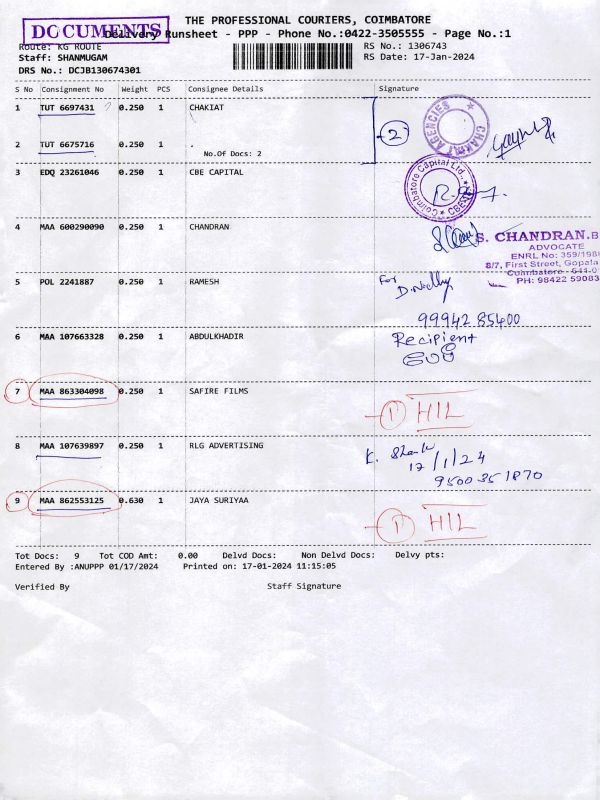 THE PROFESSIONAL COURIERS, COIMBATORE
DOCUMENTS
Delivery Runsheet - PPP - Phone No.:0422-3505555 - Page No.:1
Route: KG ROUTE
RS No.: 1306743
Staff: SHANMUGAM
RS Date: 17-Jan-2024
DRS No.: DCJB130674301
S No Consignment No Weight PCS Consignee Details Signature
1 TUT 6697431 0.250 1 CHAKIAT
2
CHAKIAT AGENCIES
2 TUT 6675716 0.250 1 .
No.Of Docs: 2
3 EDQ 23261046 0.250 1 CBE CAPITAL
Coimbatore Capital Ltd., CBE
4 MAA 600290090 0.250 1 CHANDRAN
S. CHANDRAN.B
ADVOCATE
ENRL No: 359/198
8/7, First Street, Gopala
Coimbatore - 641 0
PH: 98422 59083
5 POL 2241887 0.250 1 RAMESH
For
99942 85400
6 MAA 107663328 0.250 1 ABDULKHADIR
Recipient
7 MAA 863304098 0.250 1 SAFIRE FILMS
1 HIL
8 MAA 107639897 0.250 1 RLG ADVERTISING
17/1/24
9 MAA 862553125 0.630 1 JAYA SURIYAA
1 HIL
Tot Docs: 9 Tot COD Amt: 0.00 Delvd Docs: Non Delvd Docs: Delvy pts:
Entered By :ANUPPP 01/17/2024 Printed on: 17-01-2024 11:15:05
Verified By Staff Signature